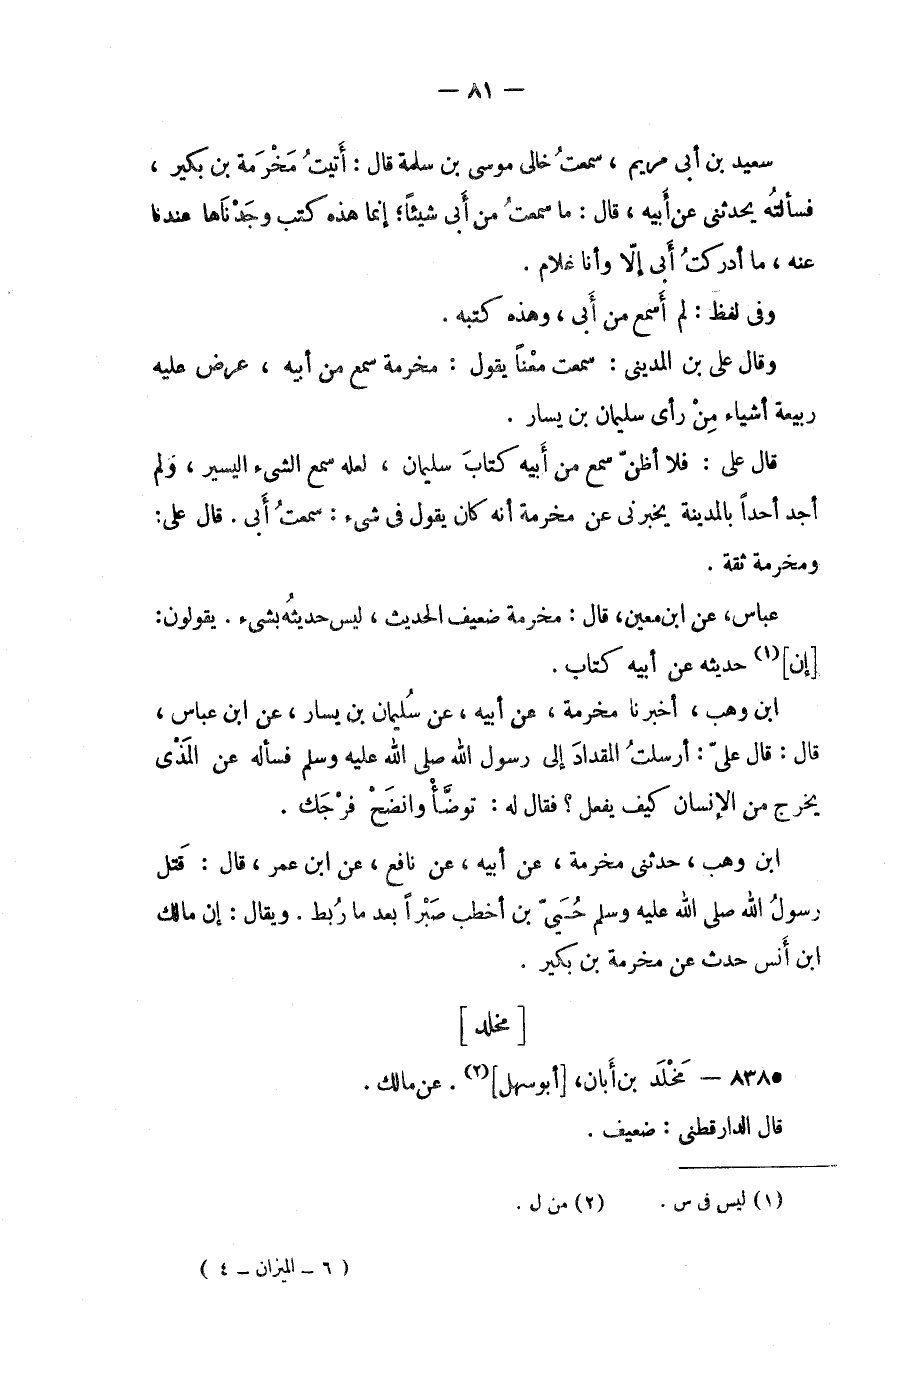 — ٨١ —
سعيد بن أبى مريم ، سمعتُ خالى موسى بن سلمة قال : أَتيتُ مَخْرَمة بن بكير ،
فسألتهُ يحدثنى عن أَبيه ، قال : ما سمعتُ من أَبى شيئاً؛ إنما هذه كتب وجَدْنَاها عندنا
عنه ، ما أدركتُ أَبى إلّا وأنا غلام .
وفى لفظ : لم أَسمع من أَبى ، وهذه كتبه .
وقال على بن المدينى : سمعت معْناً يقول : مخرمة سمع من أبيه ، عرض عليه
ربيعة أشياء مِنْ رأى سليمان بن يسار .
قال على : فلا أظنّ سمع من أَبيه كتابَ سليمان ، لعله سمع الشىء اليسير ، وَلم
أجد أحداً بالمدينة يخبرنى عن مخرمة أنه كان يقول فى شىء : سمعتُ أَبى . قال على :
ومخرمة ثقة .
عباس، عن ابن معين، قال : مخرمة ضعيف الحديث ، ليس حديثُه بشىء . يقولون:
[إن](١) حديثه عن أبيه كتاب .
ابن وهب ، أخبرنا مخرمة ، عن أبيه ، عن سُليمان بن يسار ، عن ابن عباس ،
قال : قال علىّ : أرسلتُ المقدادَ إلى رسول الله صلى الله عليه وسلم فسأله عن المَذْى
يخرج من الإنسان كيف يفعل ؟ فقال له : توضَّأْ وانضَحْ فرْجَك .
ابن وهب ، حدثنى مخرمة ، عن أبيه ، عن نافع ، عن ابن عمر ، قال : قَتل
رسولُ الله صلى الله عليه وسلم حُيَيّ بن أخطب صَبْراً بعد ما رُبط . ويقال : إن مالك
ابن أَنس حدث عن مخرمة بن بكير .
[ مخلد ]
٨٣٨٥ — مَخْلَد بن أَبان، [أبو سهل](٢) . عن مالك .
قال الدارقطنى : ضعيف .
(١) ليس فى س . (٢) من ل .
( ٦ ـ الميزان ـ ٤ )